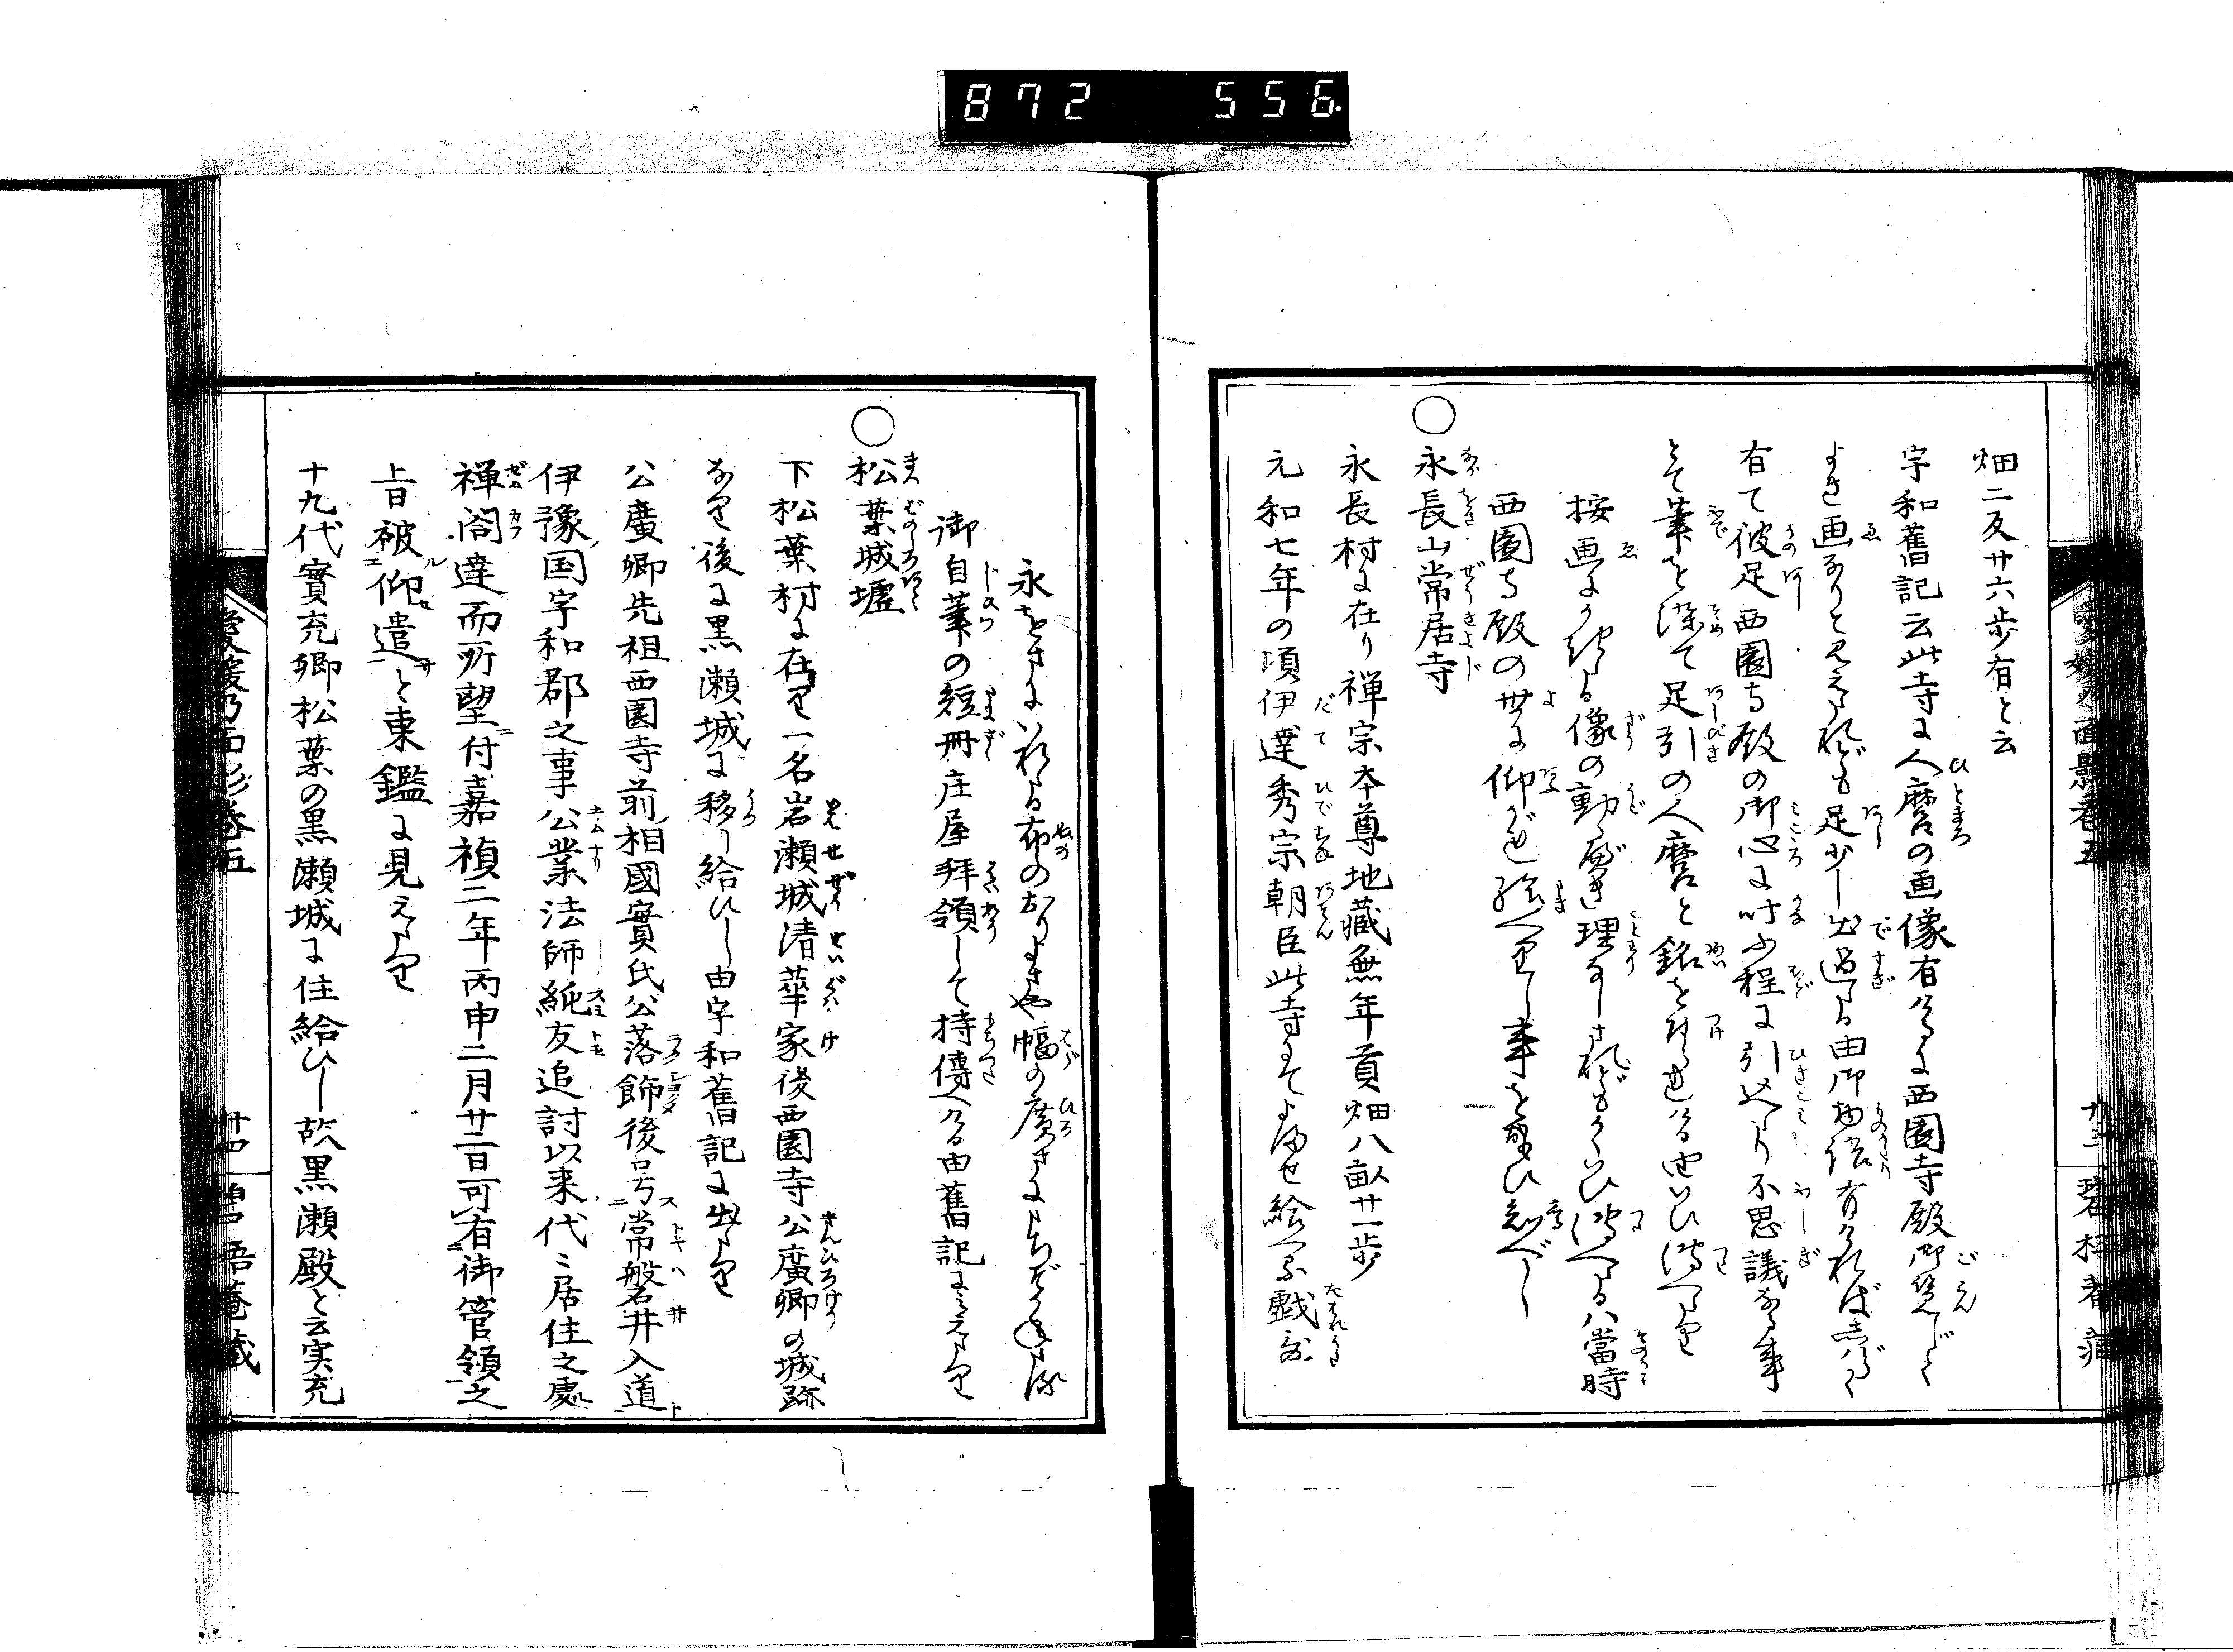 872 556
愛媛乃面影巻五
廿三
碧梧菴藏
畑二反廿六歩有と云
宇和舊記云此寺に人麿の画像有ける に西園寺殿御覧じて
よき画なりと見えたれども足少し出過たる由御物語有ければ
有て彼足西園寺殿の御心に叶ふ程に引込たり不思議なる事
とて筆を染て足引の人麿と銘を付られける由いひ傳へたり
按画にかけたる像の動べき理なしされどもかくいひ傳へたるハ當時
西園寺殿の世に仰がれ給へりし事を思ひ知べし
○永長山常居寺
永長村に在り禅宗本尊地藏無年貢畑八畝廿一歩
元和七年の頃伊達秀宗朝臣此寺にてよませ給へる戯歌
永をさにいれたる布のおりよきや幅の廣さに
御自筆の短冊庄屋拝領して持傳へける由舊記に見えたり
○松葉城墟
下松葉村に在り一名岩瀬城清華家後西園寺公廣卿の城跡
なり後に黒瀬城に移り給ひし由宇和舊記に出たり
公廣卿先祖西園寺前相國實氏公落飾後号常盤井入道
伊豫国宇和郡之事公業法師純友追討以来代々居住之處
禅閤達而所望付嘉禎二年丙申二月廿二日可有御管領之
上旨被仰遣と東鑑に見えたり
十九代實充卿松葉の黒瀬城に住給ひし故黒瀬殿と云実充
愛媛乃面影巻五
廿四
碧梧菴藏